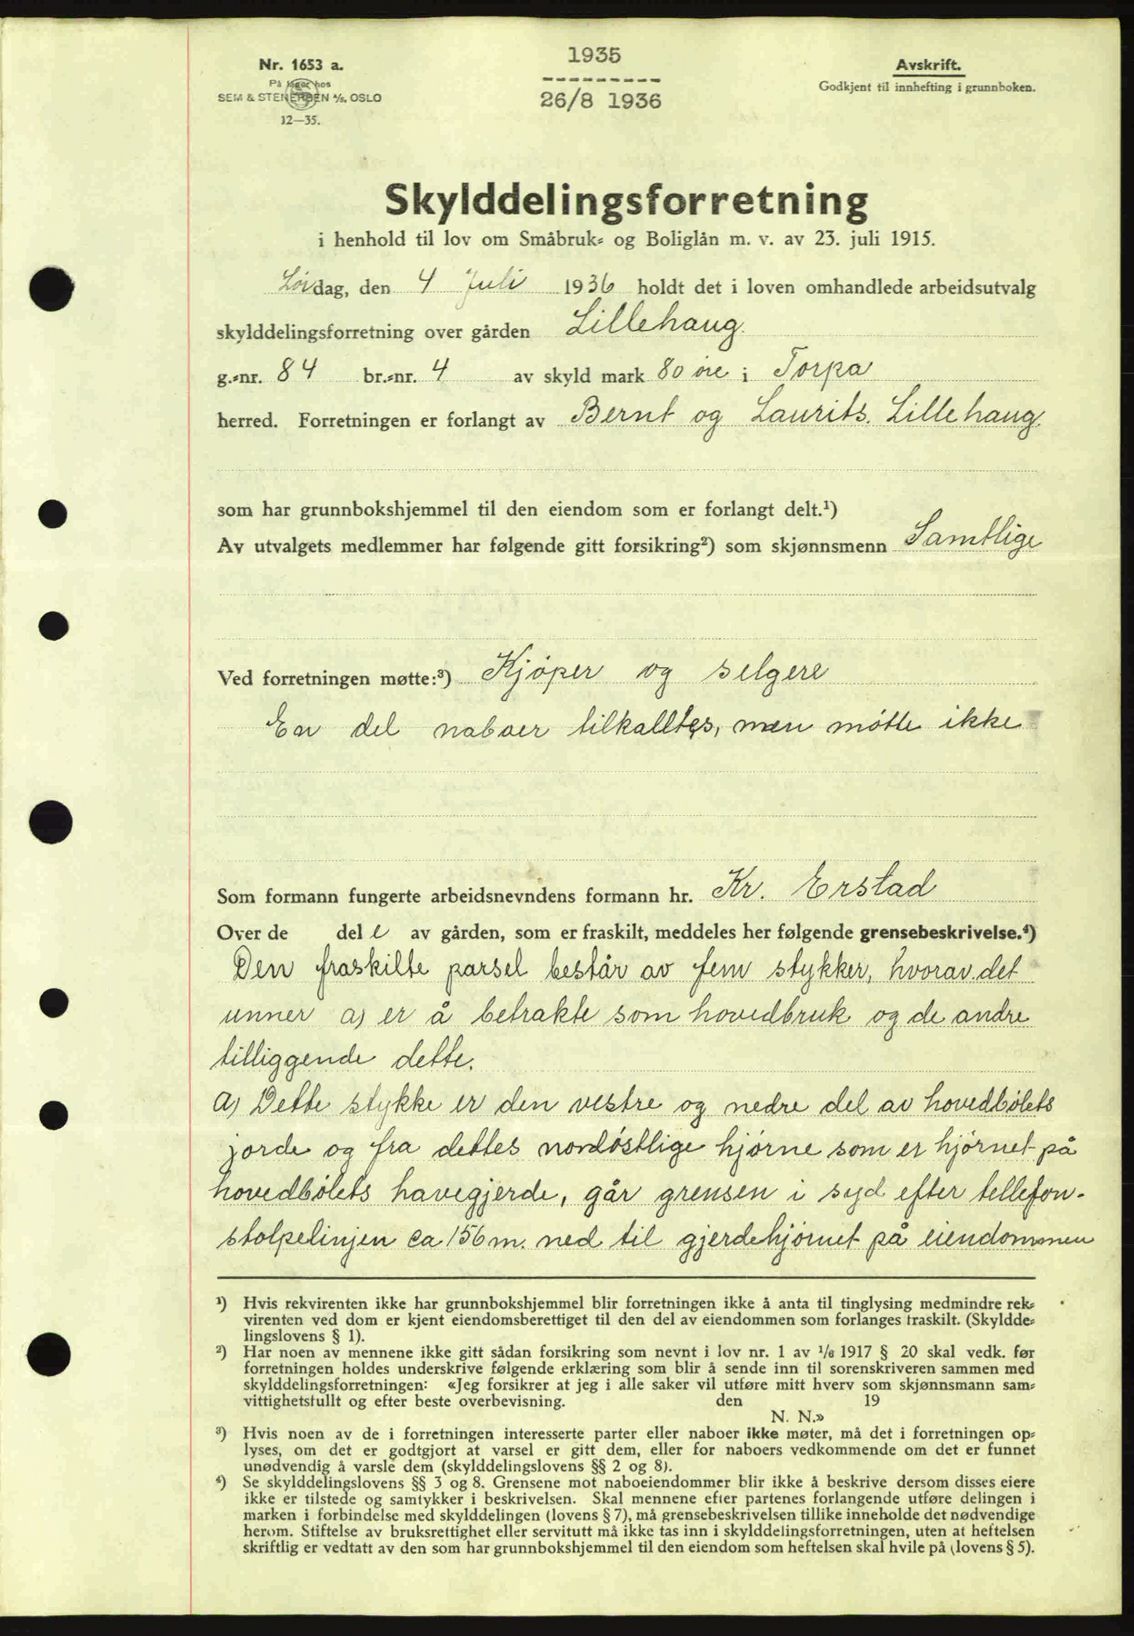 Nr. 1653 a.
På lager hos
SEM & STENERSEN A/S. OSLO
12—35.
1935
26/8 1936
Avskrift.
Godkjent til innhefting i grunnboken.
Skylddelingsforretning
i henhold til lov om Småbruk- og Boliglån m. v. av 23. juli 1915.
Lördag, den 4 Juli 1936 holdt det i loven omhandlede arbeidsutvalg
skylddelingsforretning over gården Lillehaug.
g.-nr. 84 br.-nr. 4 av skyld mark 80 öre i Torpa
herred. Forretningen er forlangt av Bernt og Laurits. Lillehaug.
som har grunnbokshjemmel til den eiendom som er forlangt delt.¹)
Av utvalgets medlemmer har følgende gitt forsikring²) som skjønnsmenn Samtlige
Ved forretningen møtte:³) Kjöper og selgere
En del naboer tilkalltes, men mötte ikke
Som formann fungerte arbeidsnevndens formann hr. Kr. Erstad
Over de del e av gården, som er fraskilt, meddeles her følgende grensebeskrivelse.⁴)
Den fraskilte parsel består av fem stykker, hvorav det
unner a) er å betrakte som hovedbruk og de andre
tilliggende dette.
a) Dette stykke er den vestre og nedre del av hovedbölets
jorde og fra dettes nordöstlige hjörne som er hjörnet på
hovedbölets havegjerde, går grensen i syd efter tellefon-
stolpelinjen ca 156 m. ned til gjerdehjörnet på eiendommen
¹) Hvis rekvirenten ikke har grunnbokshjemmel blir forretningen ikke å anta til tinglysing medmindre rek-
virenten ved dom er kjent eiendomsberettiget til den del av eiendommen som forlanges fraskilt. (Skyldde-
lingslovens § 1).
²) Har noen av mennene ikke gitt sådan forsikring som nevnt i lov nr. 1 av 1/6 1917 § 20 skal vedk. før
forretningen holdes underskrive følgende erklæring som blir å sende inn til sorenskriveren sammen med
skylddelingsforretningen: «Jeg forsikrer at jeg i alle saker vil utføre mitt hverv som skjønnsmann sam-
vittighetsfullt og efter beste overbevisning. den 19
N. N.»
³) Hvis noen av de i forretningen interesserte parter eller naboer ikke møter, må det i forretningen op-
lyses, om det er godtgjort at varsel er gitt dem, eller for naboers vedkommende om det er funnet
unødvendig å varsle dem (skylddelingslovens §§ 2 og 8).
⁴) Se skylddelingslovens §§ 3 og 8. Grensene mot naboeiendommer blir ikke å beskrive dersom disses eiere
ikke er tilstede og samtykker i beskrivelsen. Skal mennene efter partenes forlangende utføre delingen i
marken i forbindelse med skylddelingen (lovens § 7), må grensebeskrivelsen tillike inneholde det nødvendige
herom. Stiftelse av bruksrettighet eller servitutt må ikke tas inn i skylddelingsforretningen, uten at heftelsen
skriftlig er vedtatt av den som har grunnbokshjemmel til den eiendom som heftelsen skal hvile på (lovens § 5).